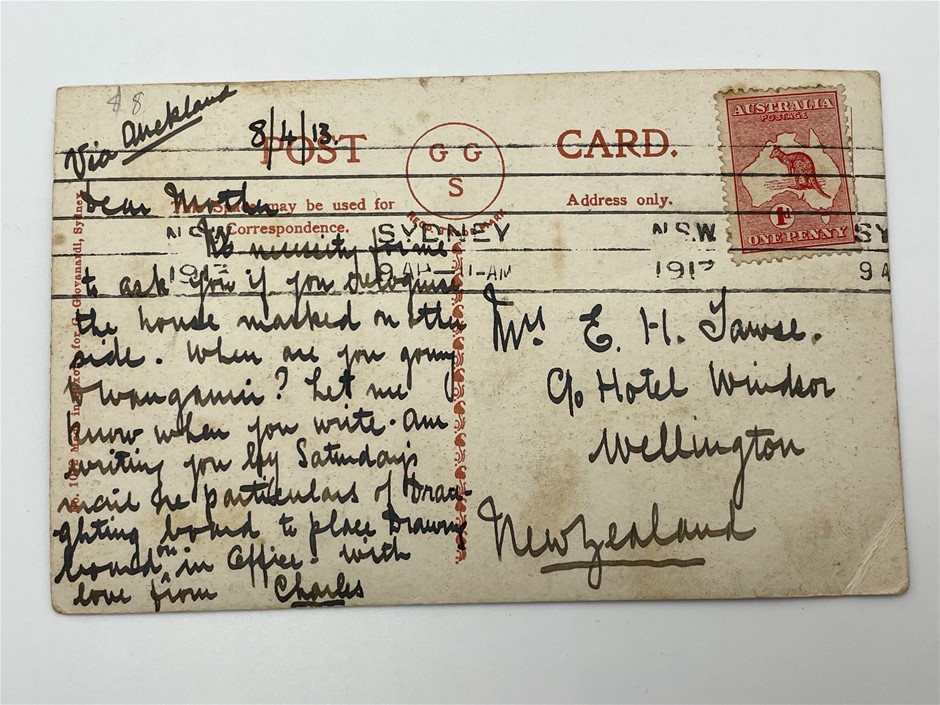 8 8
Via Auckland
8/4/13.
POST CARD.
G G
S
This Space may be used for
Correspondence.
Address only.
AUSTRALIA
POSTAGE
1D
ONE PENNY
NSW SYDNEY NSW SY
191 9 AM 11-AM 191 9 A
Dear Mother
No necessity for me
to ask you if you recognise
the house marked on other
side. When are you going
Wanganui? Let me
know when you write. Am
writing you by Saturday's
mail re particulars of Drau-
ghting board to place Drawing
board on in Office. With
love from Charles
Mrs E. H. Tawse.
C/o Hotel Windsor
Wellington
New Zealand
Made in Saxony for G. Giovanardi, Sydney